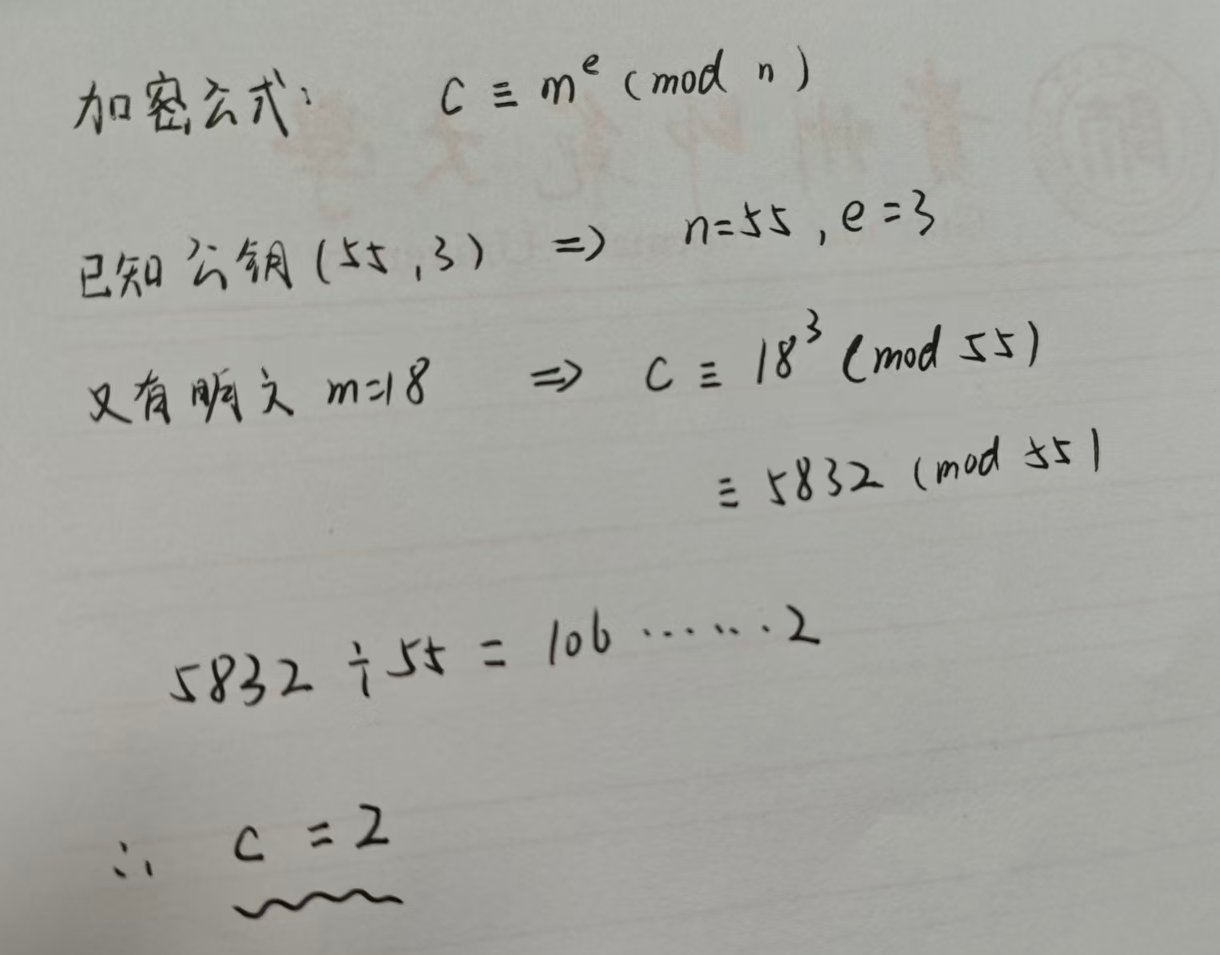 加密公式: C ≡ m^e (mod n)
已知公钥(55,3) => n=55, e=3
又有明文 m=18 => C ≡ 18^3 (mod 55)
≡ 5832 (mod 55)
5832 ÷ 55 = 106 ······ 2
∴ C = 2